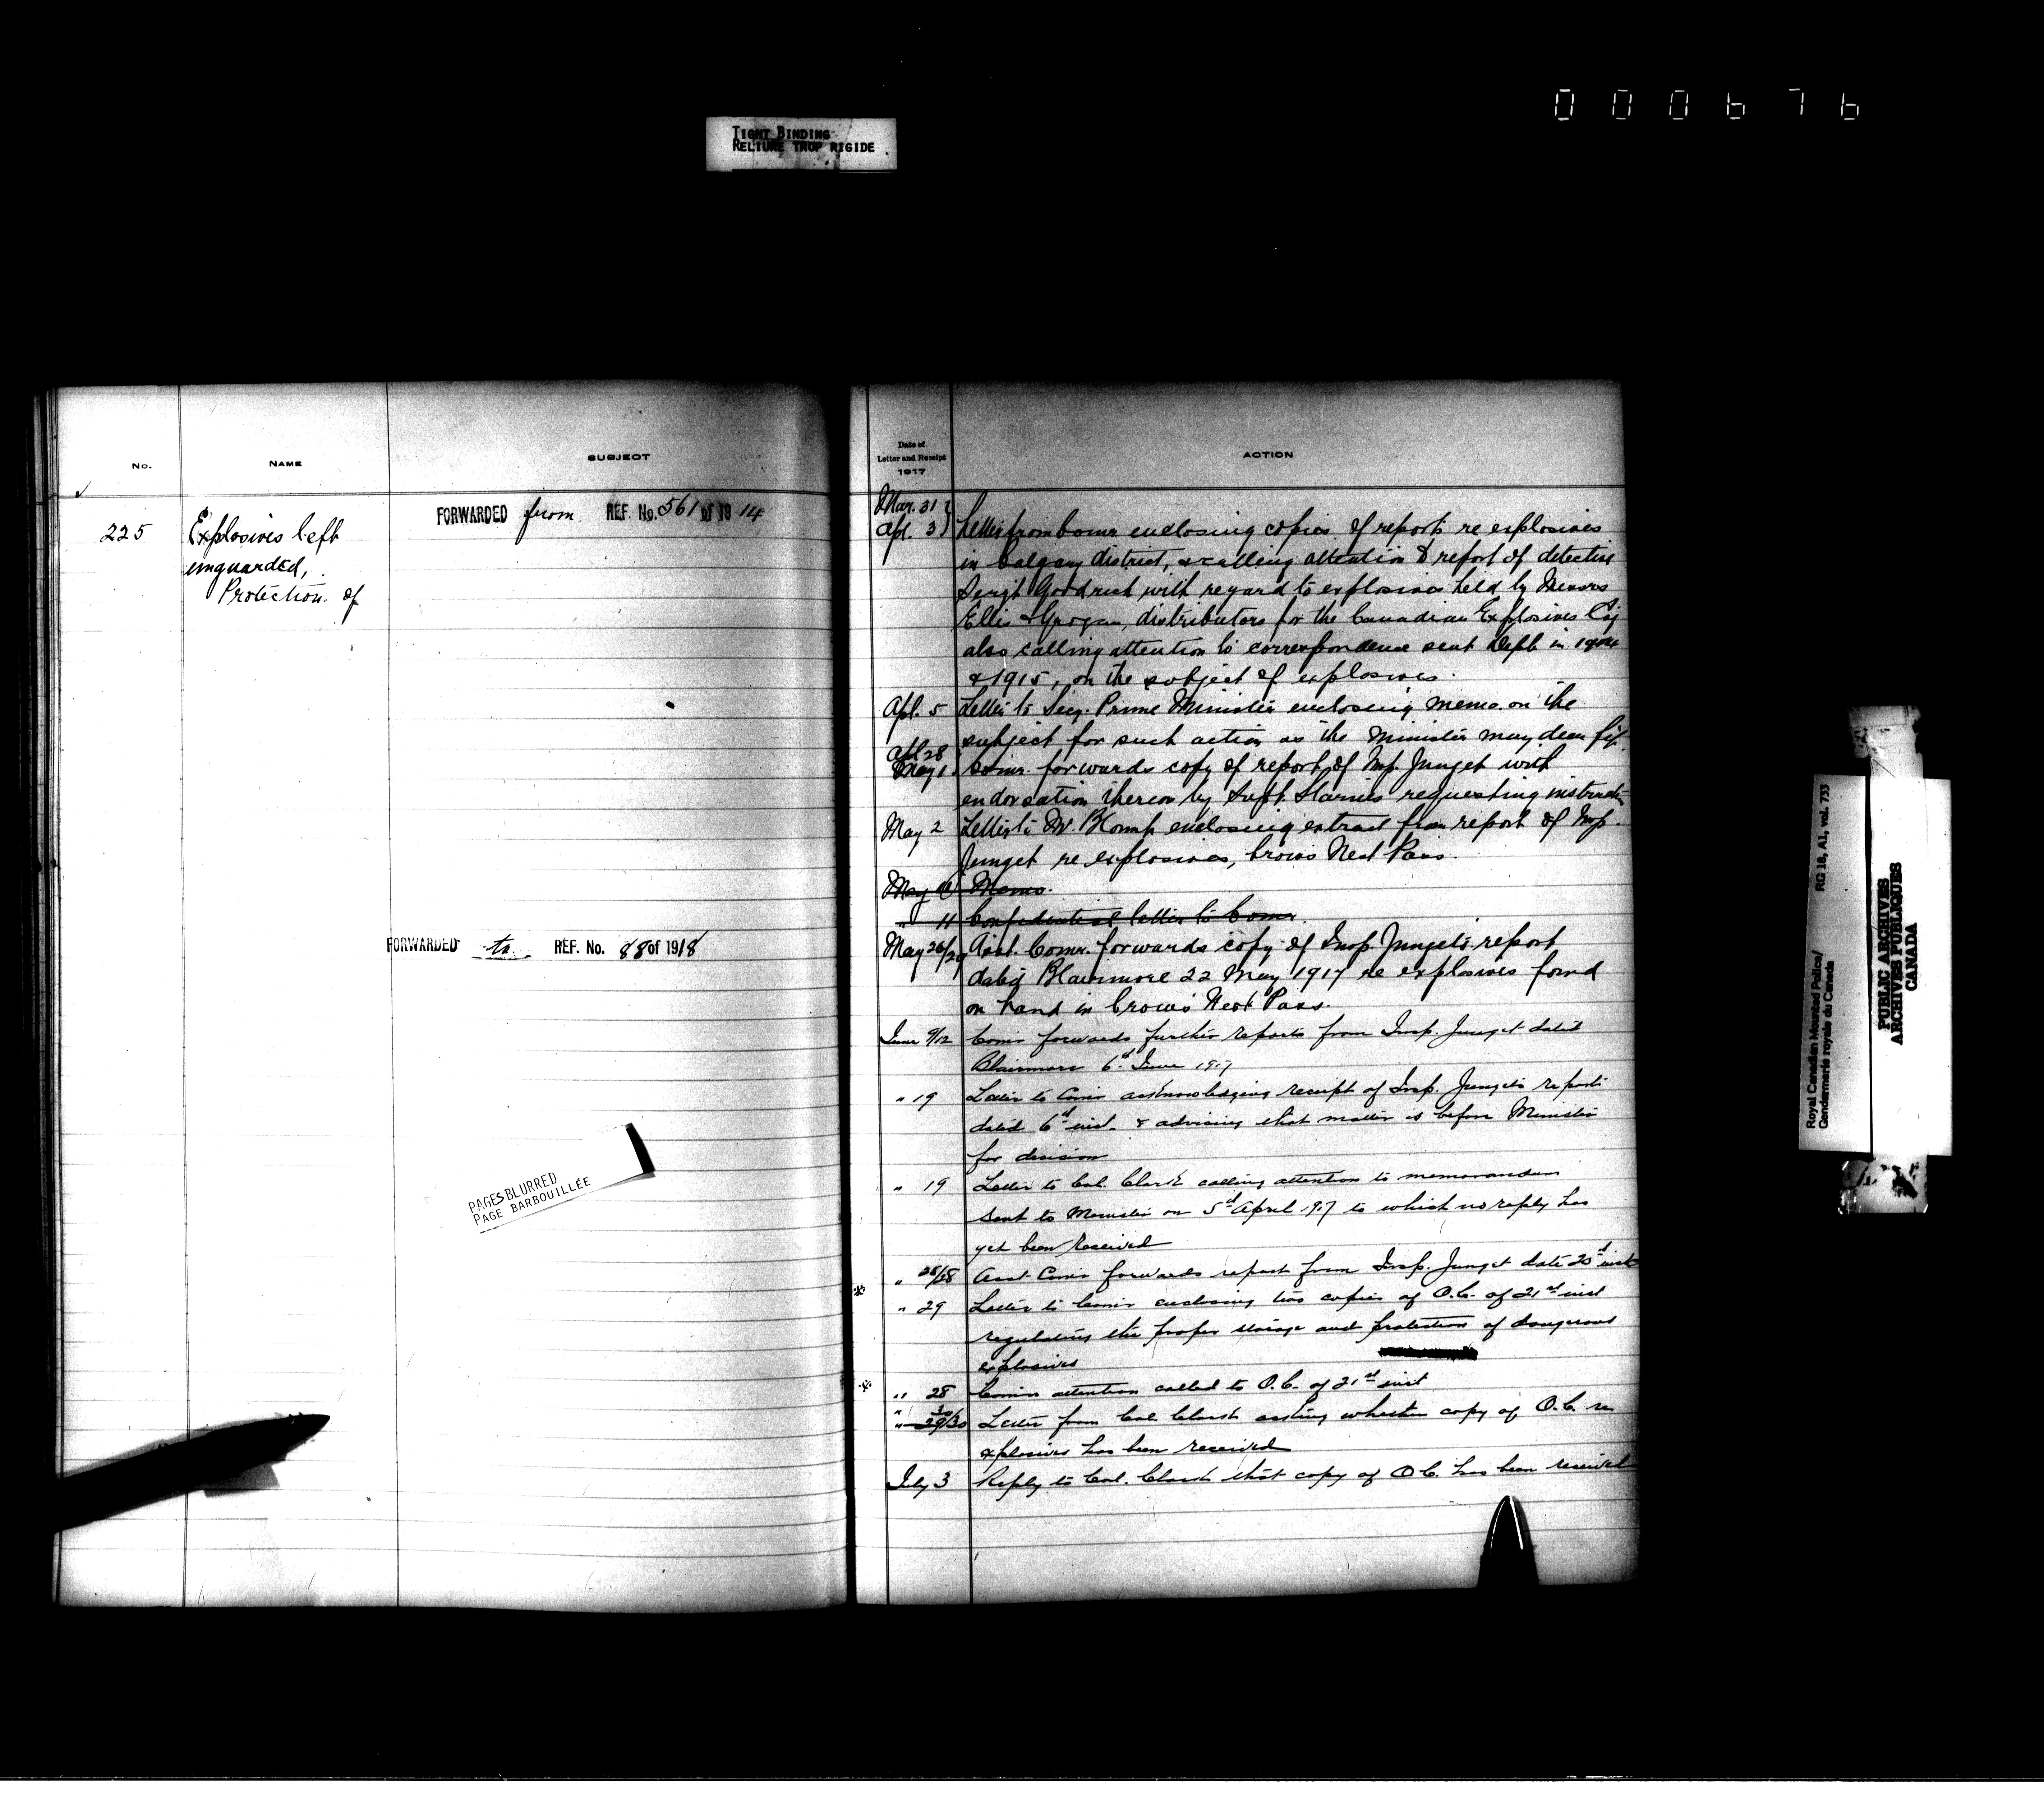 000676
TIGHT BINDING
RELIURE TROP RIGIDE
No.
NAME
SUBJECT
225
Explosives left
unguarded,
Protection of
FORWARDED from REF. No. 561 of 1914
FORWARDED to REF. No. 88 of 1918
PAGES BLURRED
PAGE BARBOUILLÉE
Date of
Letter and Receipt
1917
ACTION
Mar. 31
Apl. 3 Letter from Comr enclosing copies of reports re explosives
in Calgary district, & calling attention to report of detective
Sergt Goodrich with regard to explosives held by Messrs
Ellis & Grogan, distributors for the Canadian Explosives Coy
also calling attention to correspondence sent Dept. in 1914
& 1915, on the subject of explosives.
Apl. 5 Letter to Secy. Prime Minister enclosing memo. on the
subject for such action as the Minister may deem fit.
Apl 28
May 1 Comr. forwards copy of report of Insp. Junget with
endorsation thereon by Supt. Starnes requesting
May 2 Letter to Mr. enclosing extract from report of Insp.
Junget re explosives, Crows Nest Pass.
May Memo.
" 11 Confidential letter to Comr.
May 26/29 Asst. Comr. forwards copy of Insp. Junget's report
dated Blairmore 22 May 1917 re explosives found
on hand in Crow's Nest Pass.
June 9/12 Comr forwards further reports from Insp. Junget dated
Blairmore 6th June 1917
" 19 Letter to Comr acknowledging receipt of Insp. Junget's report
dated 6th inst. & advising that matter is before Minister
for decision
" 19 Letter to Col. Clark calling attention to memorandum
sent to Minister on 5th April 1917 to which no reply has
yet been received
" 25/28 Asst Comr forwards report from Insp. Junget date 20th inst
" 29 Letter to Comr enclosing two copies of O.C. of 21st inst
regulating the proper storage and protection of dangerous
explosives
" 28 Comrs attention called to O.C. of 21st inst
" 29/30 Letter from Col. Clark asking whether copy of O.C. re
explosives has been received
July 3 Reply to Col. Clark that copy of O.C. has been received
Royal Canadian Mounted Police/ RG 18, A1, vol. 733
Gendarmerie royale du Canada
PUBLIC ARCHIVES
ARCHIVES PUBLIQUES
CANADA